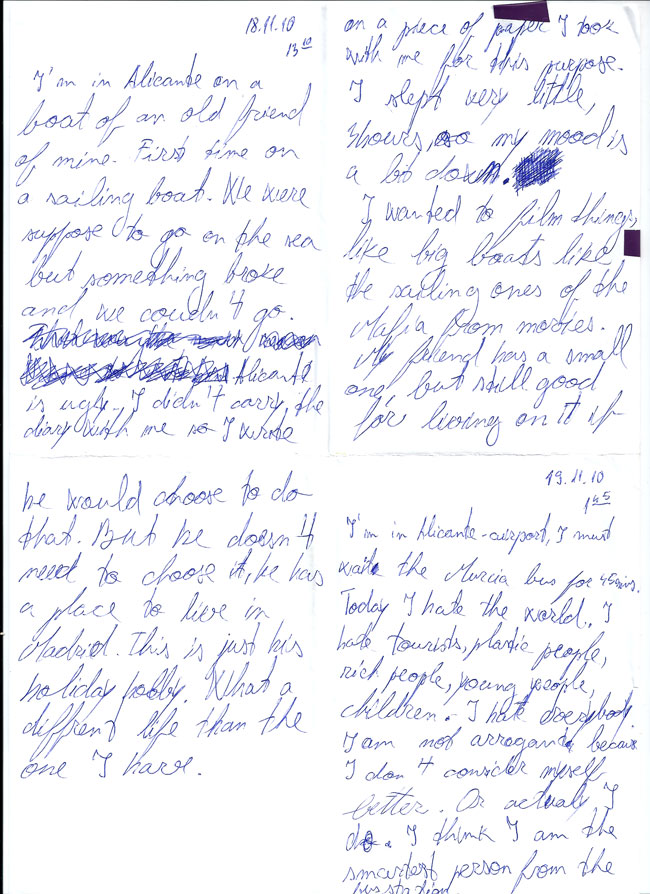 18.11.10
13 10
I'm in Alicante on a
boat of an old friend
of mine. First time on
a sailing boat. We were
suppose to go on the sea
but something broke
and we coudn't go.
Alicante
is ugly. I didn't carry the
diary with me so I wrote
on a piece of paper I took
with me for this purpose.
I slept very little,
3hours, so my mood is
a bit down.
I wanted to film things,
like big boats like
the sailing ones of the
Mafia from movies.
My friend has a small
one, but still good
for living on it if
he would choose to do
that. But he doesn't
need to choose it, he has
a place to live in
Madrid. This is just his
holiday hobby. What a
diffrent life than the
one I have.
19.11.10
1 45
I'm in Alicante-airport, I must
wait the Murcia bus for 45mins.
Today I hate the world. I
hate tourists, plastic people,
rich people, young people,
children. I hate everybody.
I am not arrogant, because
I don't consider myself
better. Or actualy I
do. I think I am the
smartest person from the
bus station